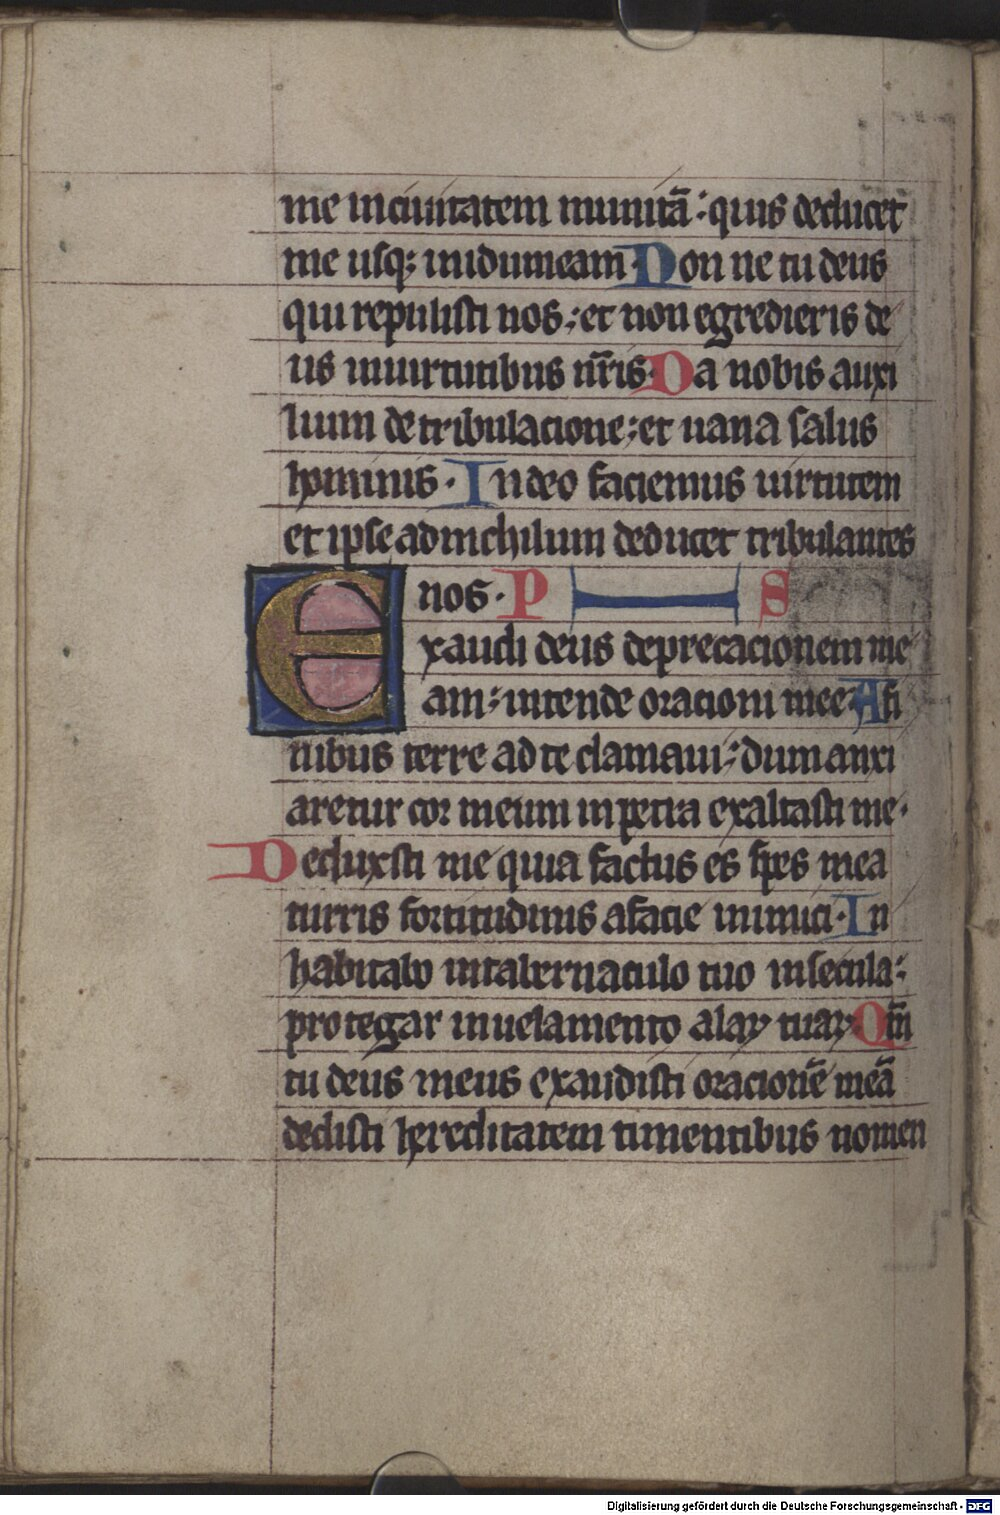 me inciuitatem munitā: quis deducet
me usq; inidumeam. Non ne tu deus
qui repulisti nos; et non egredieris de
us inuirtutibus nr̄is. Da nobis auxi
lium de tribulacione; et uana salus
hominis. In deo faciemus uirtutem
et ipse adnichilum deducet tribulantes
nos. P S
Exaudi deus deprecacionem me
am; intende oracioni mee. A fi
nibus terre ad te clamaui; dum anxi
aretur cor meum in petra exaltasti me.
Deduxsti me quia factus es spes mea
turris fortitudinis afacie inimici. In
habitabo intabernaculo tuo insecula:
protegar inuelamento alaꝝ tuaꝝ. Qm̄
tu deus meus exaudisti oracionē meā
dedisti hereditatem timentibus nomen
Digitalisierung gefördert durch die Deutsche Forschungsgemeinschaft - DFG